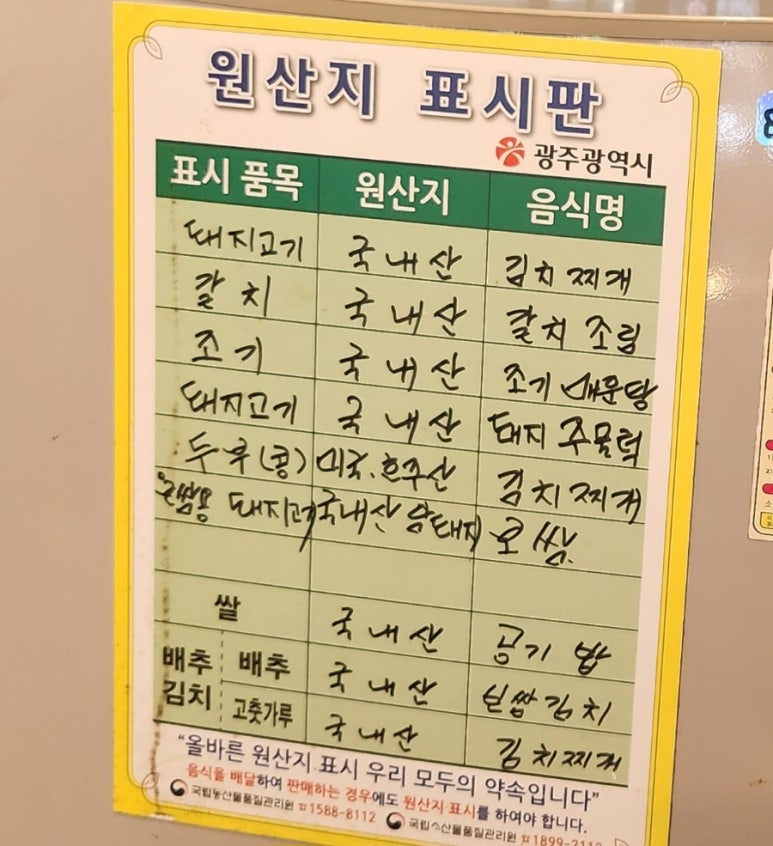 원산지 표시판
광주광역시
표시 품목 원산지 음식명
돼지고기 국내산 김치찌개
갈치 국내산 갈치조림
조기 국내산 조기매운탕
돼지고기 국내산 돼지주물럭
두부(콩) 미국.호주산 김치찌개
보쌈용 돼지고기 국내산 암돼지 보쌈
쌀 국내산 공기밥
배추김치 배추 국내산 보쌈김치
고춧가루 국내산 김치찌개
"올바른 원산지 표시 우리 모두의 약속입니다"
음식을 배달하여 판매하는 경우에도 원산지 표시를 하여야 합니다.
국립농산물품질관리원 ☎1588-8112 국립수산물품질관리원 ☎1899-2112